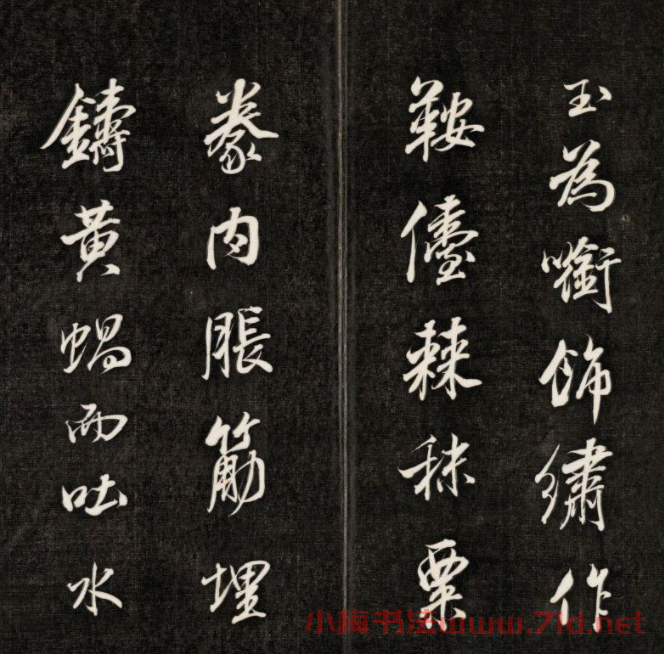 玉為㘅飾繡作
鞍儓棘秣粟
豢肉脹筋埋
鑄黃蝸而吐水
小梅书法www.7ld.net